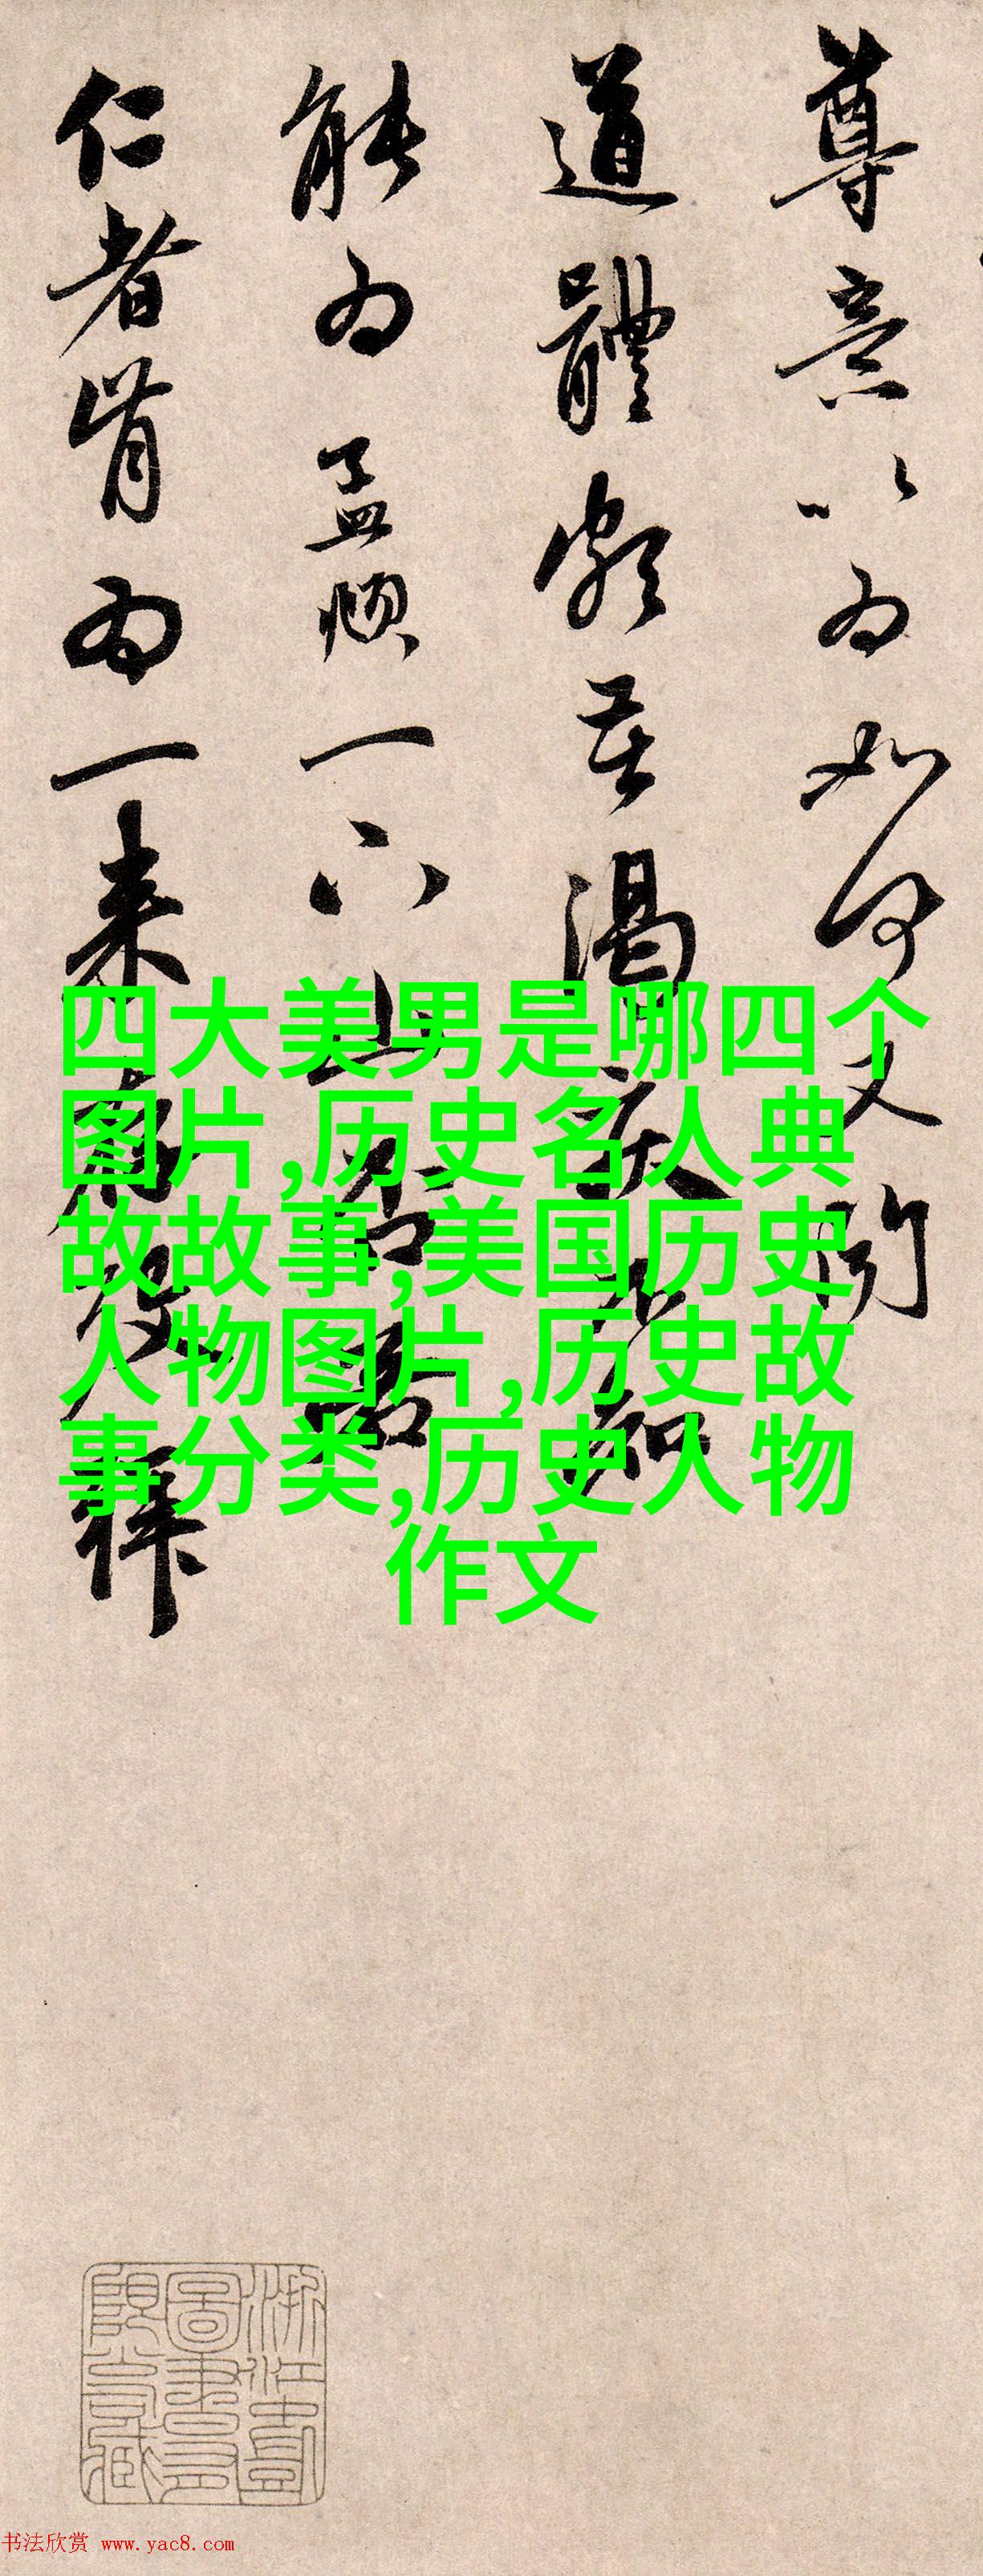 尊意以为如何又闻
道體颇苦渴疾不知
能为孟頫一下山否若
仁者肯为一来
四大美男是哪四个
图片,历史名人典
故故事,美国历史
人物图片,历史故
事分类,历史人物
作文
书法欣赏 www.yac8.com